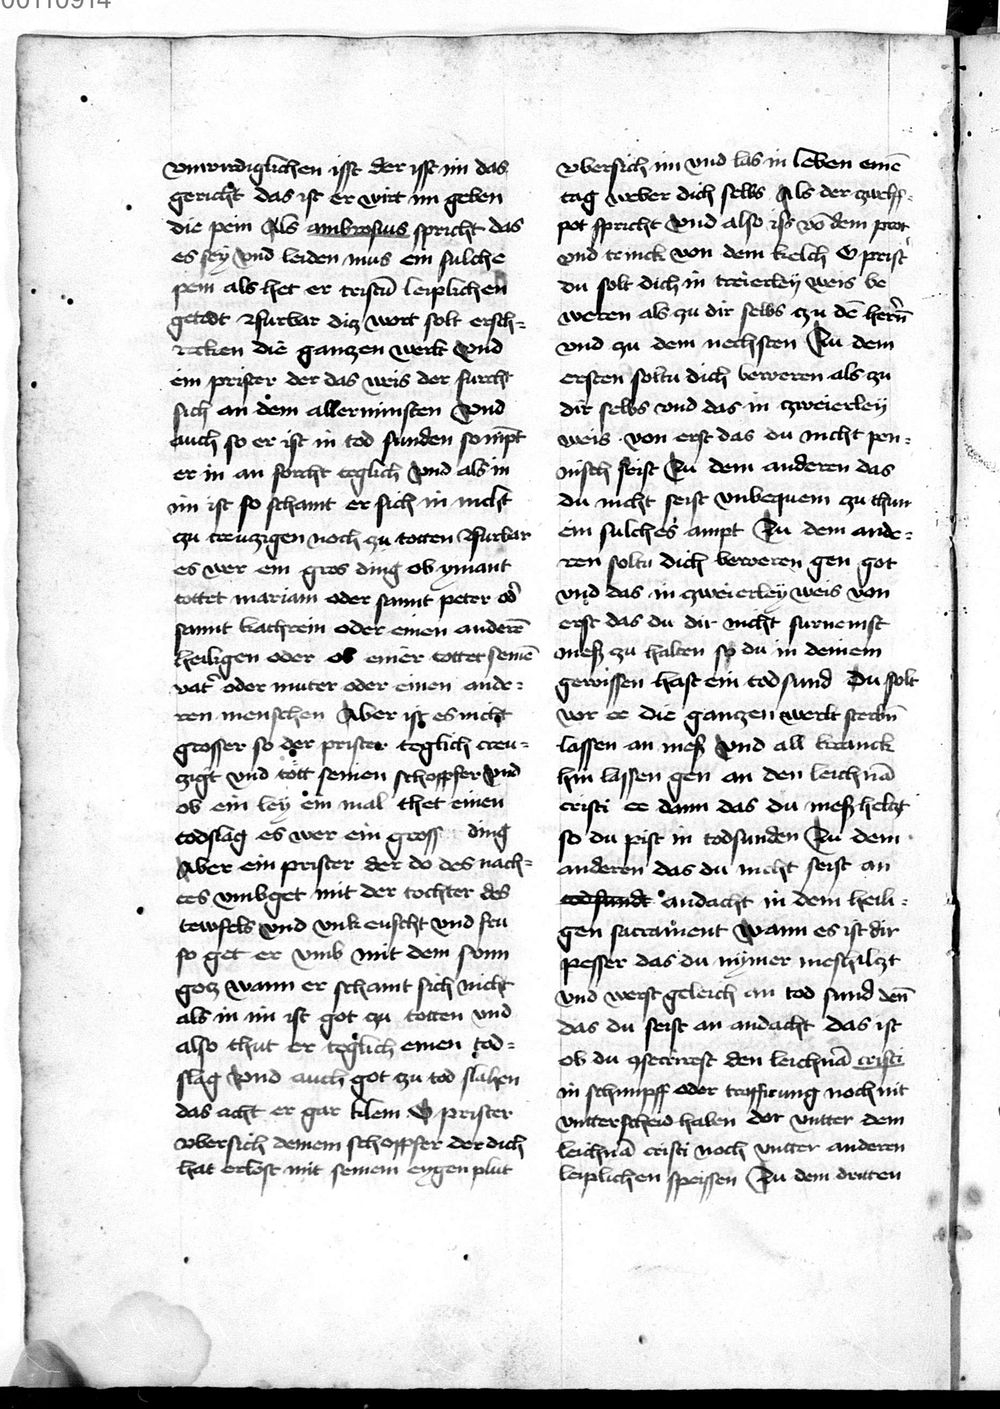 00110914
vnwirdiglichen isst der isst im das
gericht das ist er wirt im geben
die pein Als ambrosius spricht das
es sey vnd leiden mus ein sulche
pein als het er cristū leiplichen
getodt furbar diz wort solt ersch-
recken die ganzen werlt Vnd
ein prister der das weis der furcht
sich an dem allerminsten Vnd
auch so er ist in tod sunden so nīpt
er in an forcht teglich Vnd als in
im ist so schamt er sich in nicht
zu creuzigen noch zu totten furbar
es wer ein gros ding ob ymant
tottet mariam oder sannt peter od'
sannt kathrein oder einen anderē
heiligen oder ob einer tottet seinē
vat' oder muter oder einen ande-
ren menschen Aber ist es nicht
grosser so der prister teglich creu-
zigt vnd tott seinen schopffer Vnd
ob ein ley ein mal thet einen
todslag es wer ein gross ding
Aber ein prister der do des nach-
tes vmbget mit der tochter des
tewfels vnd vnkeuscht vnd fru
so get er vmb mit dem sunn
gotz wann er schamt sich nicht
als in im ist got zu totten vnd
also thut er teglich einen tod-
slag Vnd auch got zu tod slahen
das acht er gar klein O prister
vbersich deinem schopffer der dich
hat erlost mit seinem eygen plut
vbersich im vnd las in leben einē
tag weber dich selbs Als der zwelf-
pot spricht Vnd also iss vō dem prot
vnd trinck von dem kelch O prist'
du solt dich in treierley weis be
weren als zu dir selbs zu dē herrn
vnd zu dem nechsten Zu dem
ersten soltu dich beweren als zu
dir selbs vnd das in zweierley
weis von erst das du nicht pen-
nisch seist Zu dem anderen das
du nicht seist vnbequem zu thun
ein sulches ampt Zu dem ande-
ren soltu dich beweren gen got
vnd das in zweierley weis von
erst das du dir nicht furnemst
mess zu halten so du in deinem
gewissen hast ein tod sund Du solt
vor ee die ganzen werlt sterbn
lassen an mess Vnd all kranck
hin lassen gen an den leichnā
cristi ee dann das du mess heltzt
so du pist in todsunden Zu dem
anderen das du nicht seist an
todsundt andacht in dem heili-
gen sacrament Wann es ist dir
pesser das du nymer mess hilzt
vnd werst geleich an tod sund denn
das du seist an andacht das ist
ob du 9secrirest den leichnā cristi
in schimpff oder noch nit
vntterscheid haben dot vntter dem
leichnā cristi noch vntter anderen
leiplichen speissen Zu dem dritten